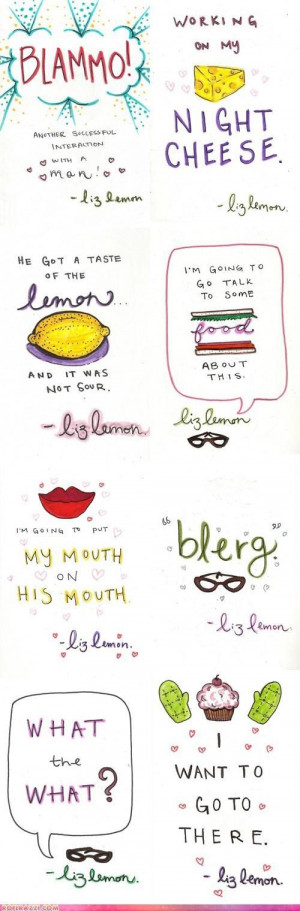 BLAMMO!
ANOTHER SUCCESSFUL
INTERACTION
WITH A
man!
- liz lemon
WORKING
ON MY
NIGHT
CHEESE.
- liz lemon.
HE GOT A TASTE
OF THE
lemon...
AND IT WAS
NOT SOUR.
- liz lemon.
I'M GOING TO
GO TALK
TO SOME
food
ABOUT
THIS.
liz lemon
I'M GOING TO PUT
MY MOUTH
ON
HIS MOUTH
- liz lemon.
"blerg."
- liz lemon.
WHAT
the
WHAT?
- liz lemon.
I
WANT TO
GO TO
THERE.
- liz lemon.